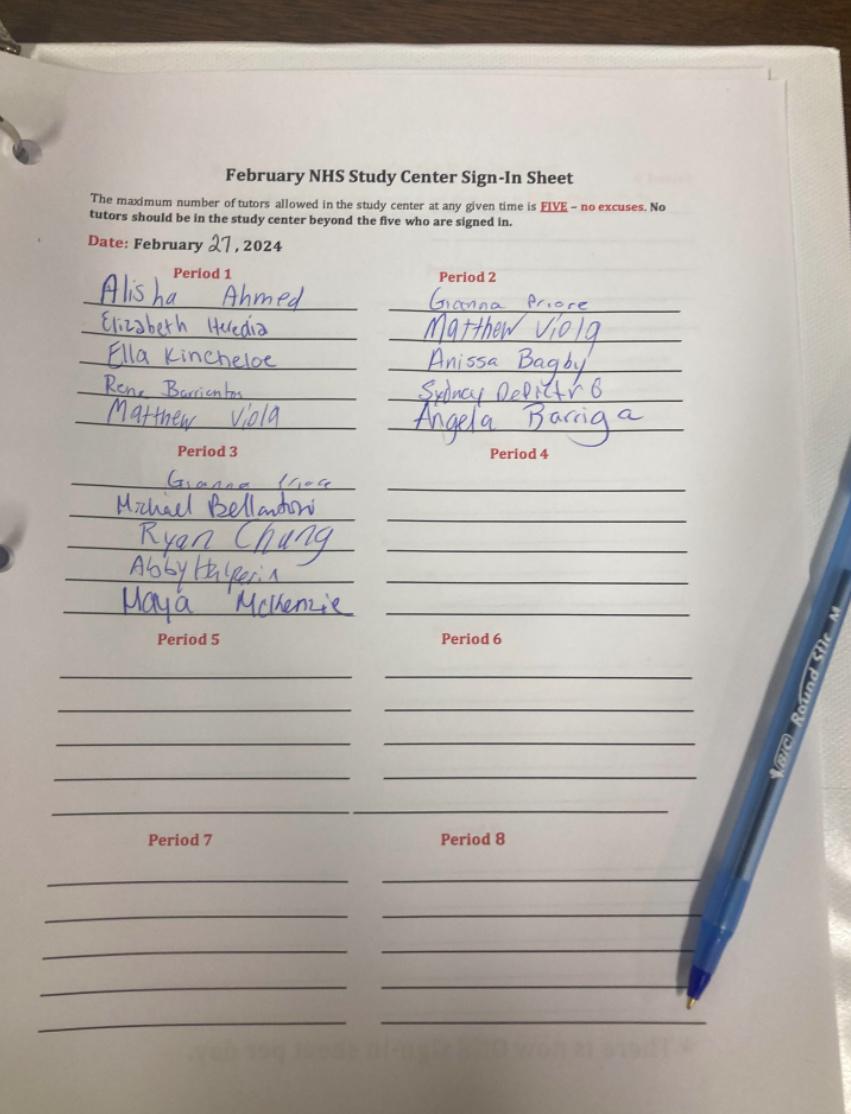 February NHS Study Center Sign-In Sheet
The maximum number of tutors allowed in the study center at any given time is FIVE – no excuses. No
tutors should be in the study center beyond the five who are signed in.
Date: February 27, 2024
Period 1
Alisha Ahmed
Elizabeth Heredia
Ella Kincheloe
Rene Barrientos
Matthew Viola
Period 2
Gianna Priore
Matthew Viola
Anissa Bagby
Sydney
Angela Barriga
Period 3
Gianna Priore
Michael Bellantoni
Ryan Chung
Abby Halperin
Maya McKenzie
Period 4
Period 5
Period 6
Period 7
Period 8
BIC Round Stic M